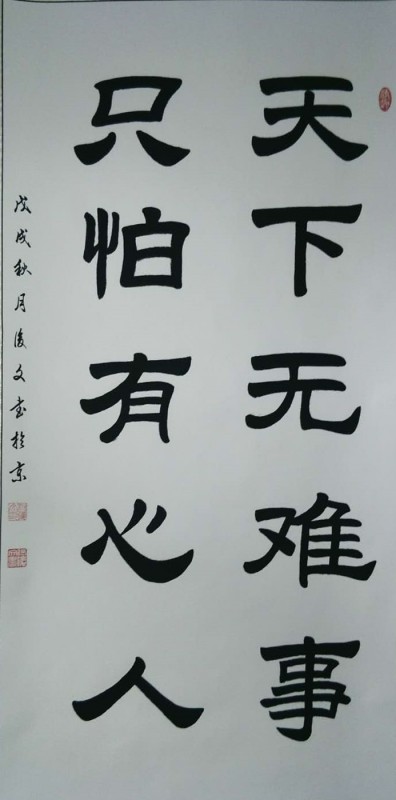 天下无难事
只怕有心人
戊戌秋月俊文书於京